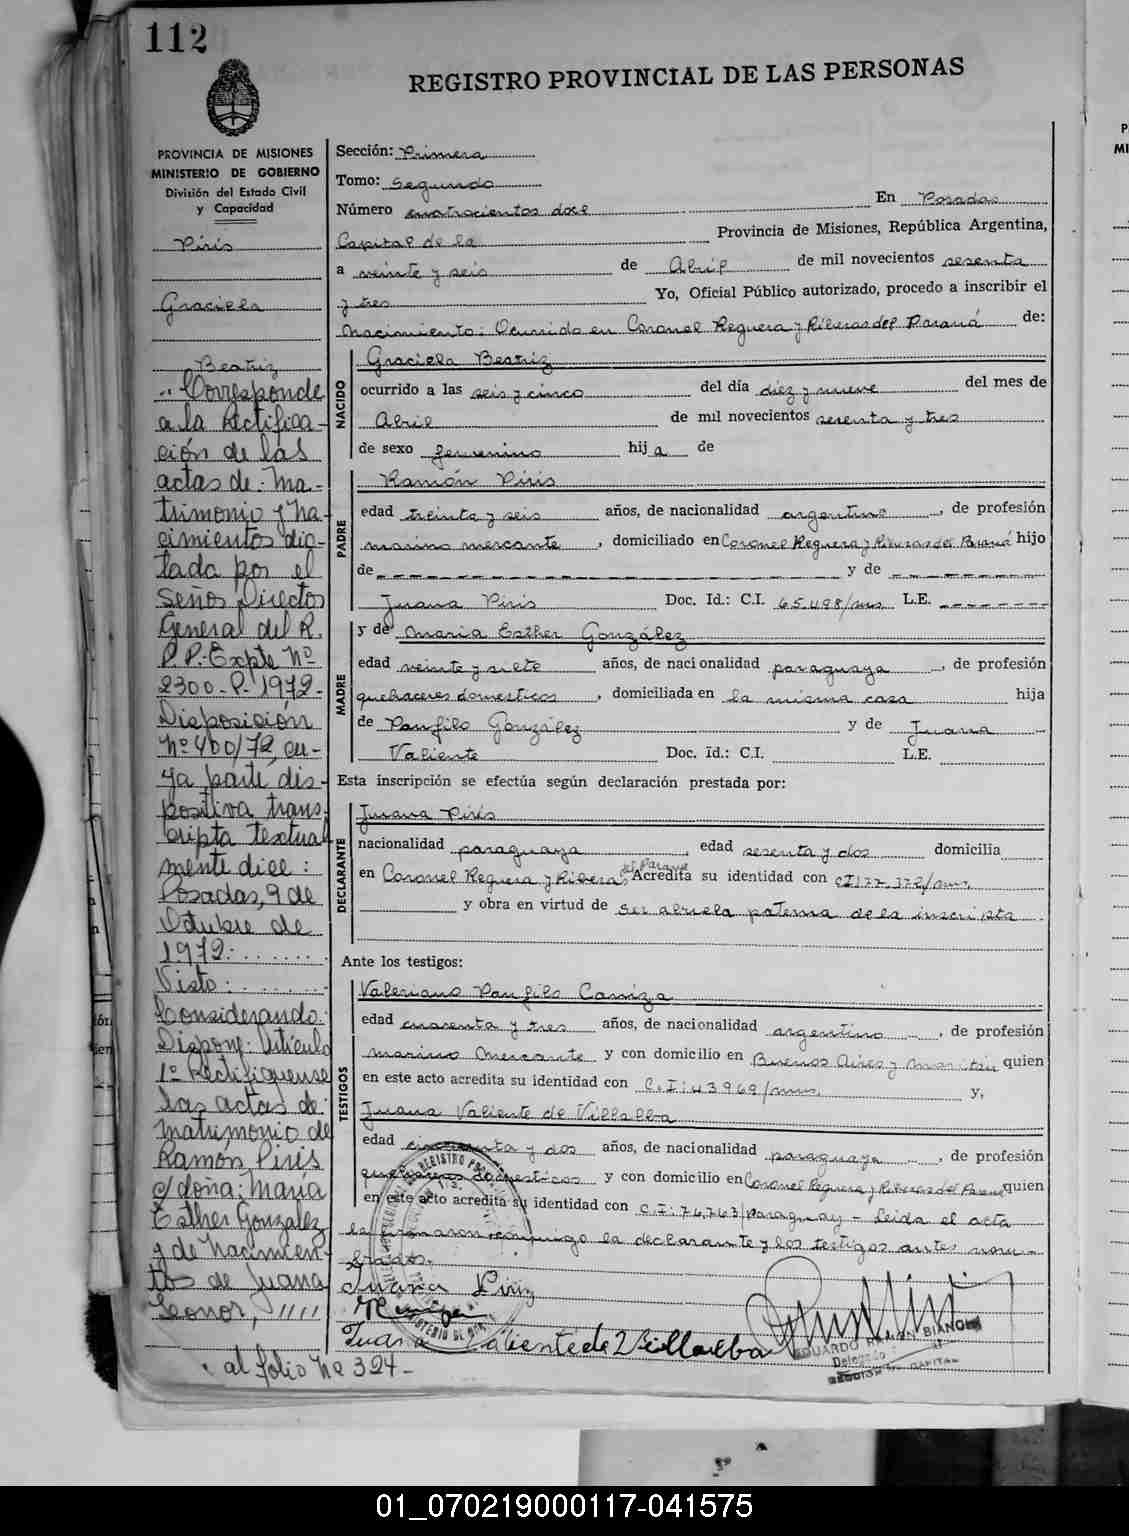 112
REGISTRO PROVINCIAL DE LAS PERSONAS
PROVINCIA DE MISIONES
MINISTERIO DE GOBIERNO
División del Estado Civil
y Capacidad
Piris
Graciela
Beatriz
Corresponde
a la Rectifica-
ción de las
actas de: Ma-
trimonio y Na-
cimientos dic-
tada por el
Señor Director
General del R.
P.P.- Expte Nº
2300-P-1972-
Disposición
Nº 400/72, cu-
ya parte dis-
positiva trans-
cripta textual
mente dice:
Posadas, 9 de
Octubre de
1972:
Visto:
Considerando:
Dispone: Articulo
1º Rectifiquense
las actas de:
matrimonio de
Ramón Piris
c/ doña: María
Esther González
y de nacimien-
tos de Juana
Leonor, ////
al folio Nº 324-
Sección: Primera
Tomo: Segundo
Número cuatrocientos doce En Posadas
Capital de la Provincia de Misiones, República Argentina,
a veinte y seis de Abril de mil novecientos sesenta
y tres Yo, Oficial Público autorizado, procedo a inscribir el
Nacimiento: Ocurrido en Coronel Reguera y Riberas del Paraná de:
NACIDO
Graciela Beatriz
ocurrido a las seis y cinco del día diez y nueve del mes de
Abril de mil novecientos sesenta y tres
de sexo femenino hija de
PADRE
Ramón Piris
edad treinta y seis años, de nacionalidad argentino, de profesión
marino mercante, domiciliado en Coronel Reguera y Riberas del Paraná hijo
de y de
Juana Piris Doc. Id.: C.I. 65.498/ms L.E.
MADRE
y de Maria Esther González
edad veinte y siete años, de nacionalidad paraguaya, de profesión
quehaceres domesticos, domiciliada en la misma casa hija
de Panfilo González y de Juana
Valiente Doc. Id.: C.I. L.E.
Esta inscripción se efectúa según declaración prestada por:
DECLARANTE
Juana Piris
nacionalidad paraguaya, edad sesenta y dos domicilia
en Coronel Reguera y Riberas del Paraná Acredita su identidad con CI: 77.372/ms.
y obra en virtud de ser abuela paterna de la inscripta
Ante los testigos:
TESTIGOS
Valeriano Panfilo Caniza
edad cuarenta y tres años, de nacionalidad argentino, de profesión
marino mercante y con domicilio en Buenos Aires y quien
en este acto acredita su identidad con C.I: 43969/mns. y,
Juana Valiente de Villalba
edad cincuenta y dos años, de nacionalidad paraguaya, de profesión
quehaceres domesticos y con domicilio en Coronel Reguera y Riberas del Paraná quien
en este acto acredita su identidad con C.I: 74,763/Paraguay - Leida el acta
la firmaron conmigo la declarante y los testigos antes nom-
brados.
Juana Piriz
Juana Valiente de Villalba
EDUARDO RAMON BIANCHI
Delegado
SECCION 1ª CAPITAL
01_070219000117-041575